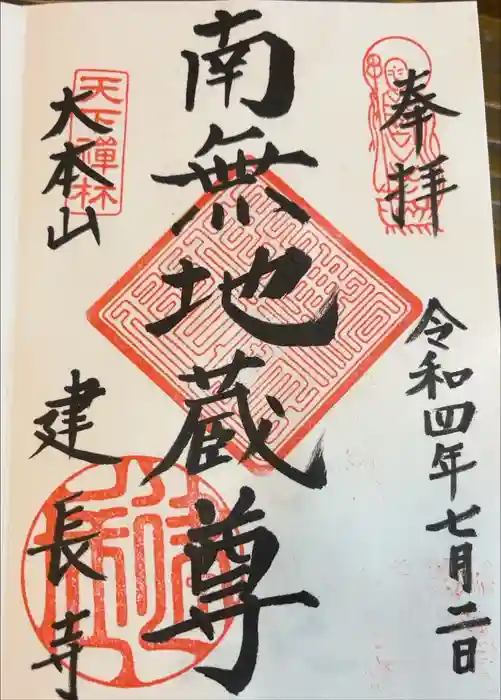 奉拝
令和四年七月二日
南無地蔵尊
大本山
天下禅林
建長寺